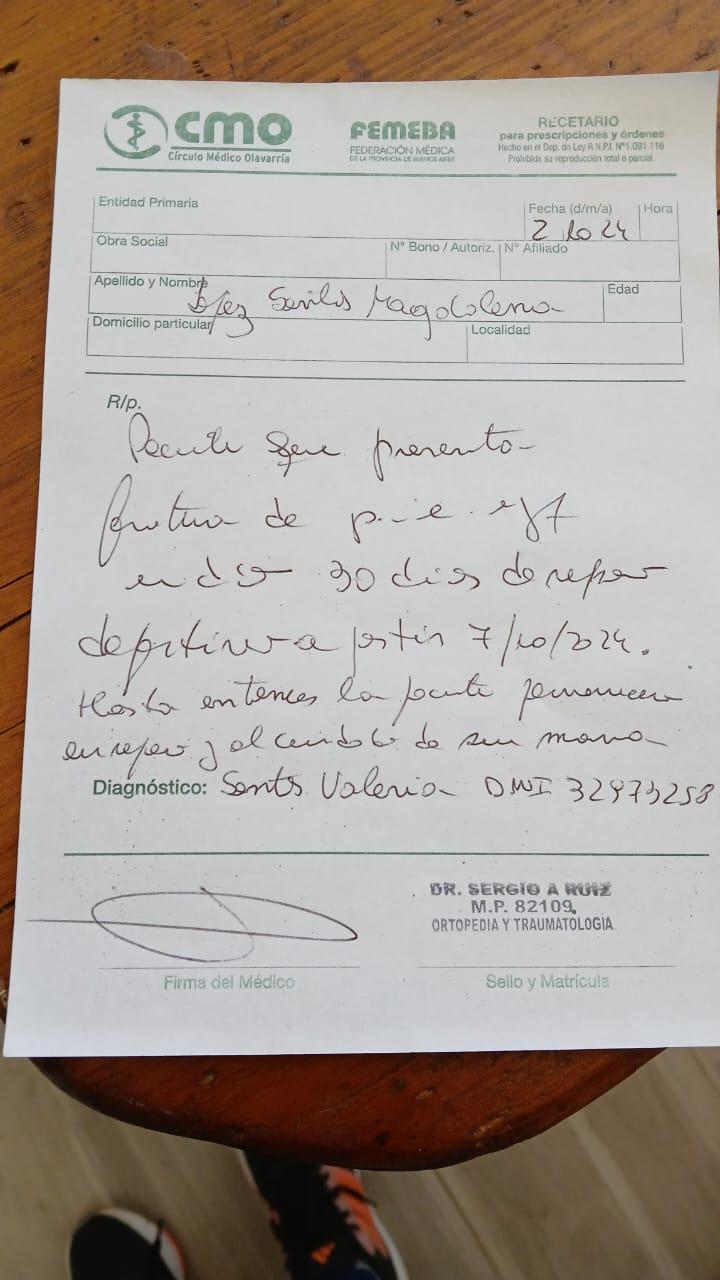 CMO
Círculo Médico Olavarría
FEMEBA
FEDERACIÓN MÉDICA
DE LA PROVINCIA DE BUENOS AIRES
RECETARIO
para prescripciones y órdenes
Hecho en el Dep. de Ley R.N.P.I. Nº1.091.116
Prohibida su reproducción total o parcial.
Entidad Primaria
Fecha (d/m/a)
Hora
2 10 24
Obra Social
Nº Bono / Autoriz.
Nº Afiliado
Apellido y Nombre
López Santos Magdalena
Edad
Domicilio particular
Localidad
R/p.
Paciente que presento
fractura de
30 dias de reposo
7/10/2024.
Hasta entonces la paciente permanecera
en reposo y al cuidado de su mama
Diagnóstico: Santos Valeria DNI 32973258
DR. SERGIO A RUIZ
M.P. 82109
ORTOPEDIA Y TRAUMATOLOGIA
Firma del Médico
Sello y Matrícula